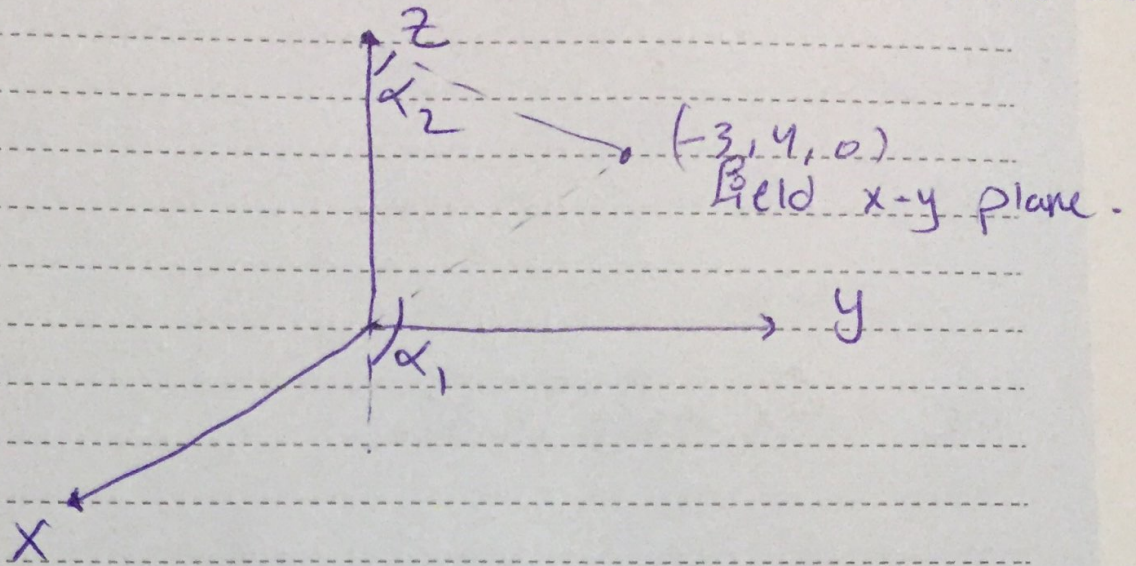 z
α₂
(-3, 4, 0)
Field x-y plane.
y
α₁
x